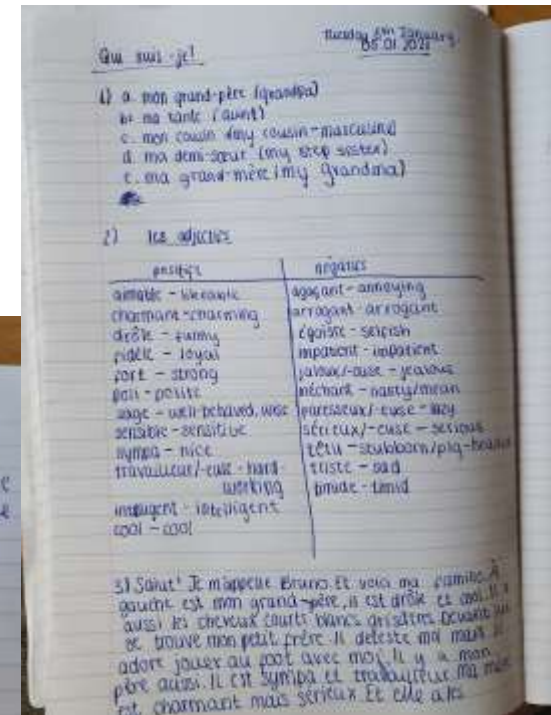 Tuesday 5th January
05.01.2021
Qui suis-je!
1) a. mon grand-père (grandpa)
b. ma tante (aunt)
c. mon cousin (my cousin-masculine)
d. ma demi-sœur (my step sister)
e. ma grand-mère (my Grandma)
2) les adjectifs
positifs négatifs
aimable - likeable agaçant - annoying
charmant - charming arrogant - arrogant
drôle - funny égoiste - selfish
fidèle - loyal impatient - impatient
fort - strong jaloux/-ouse - jealous
poli - polite méchant - nasty/mean
sage - well-behaved, wise paresseux/-euse - lazy
sensible - sensitive sérieux/-euse - serious
sympa - nice têtu - stubborn/pig-headed
travailleur/-euse - hard- triste - sad
working timide - timid
intelligent - intelligent
cool - cool
3) Salut! Je m'appelle Bruno. Et voici ma famille. À
gauche est mon grand-père, il est drôle et cool. Il a
aussi les cheveux courts blancs grisâtres. Devant lui
se trouve mon petit frère. Il deteste ma mais il
adore jouer au foot avec moi. Il y a mon
père aussi. Il est sympa et travailleur. Ma mère
est charmant mais sérieux. Et elle a les